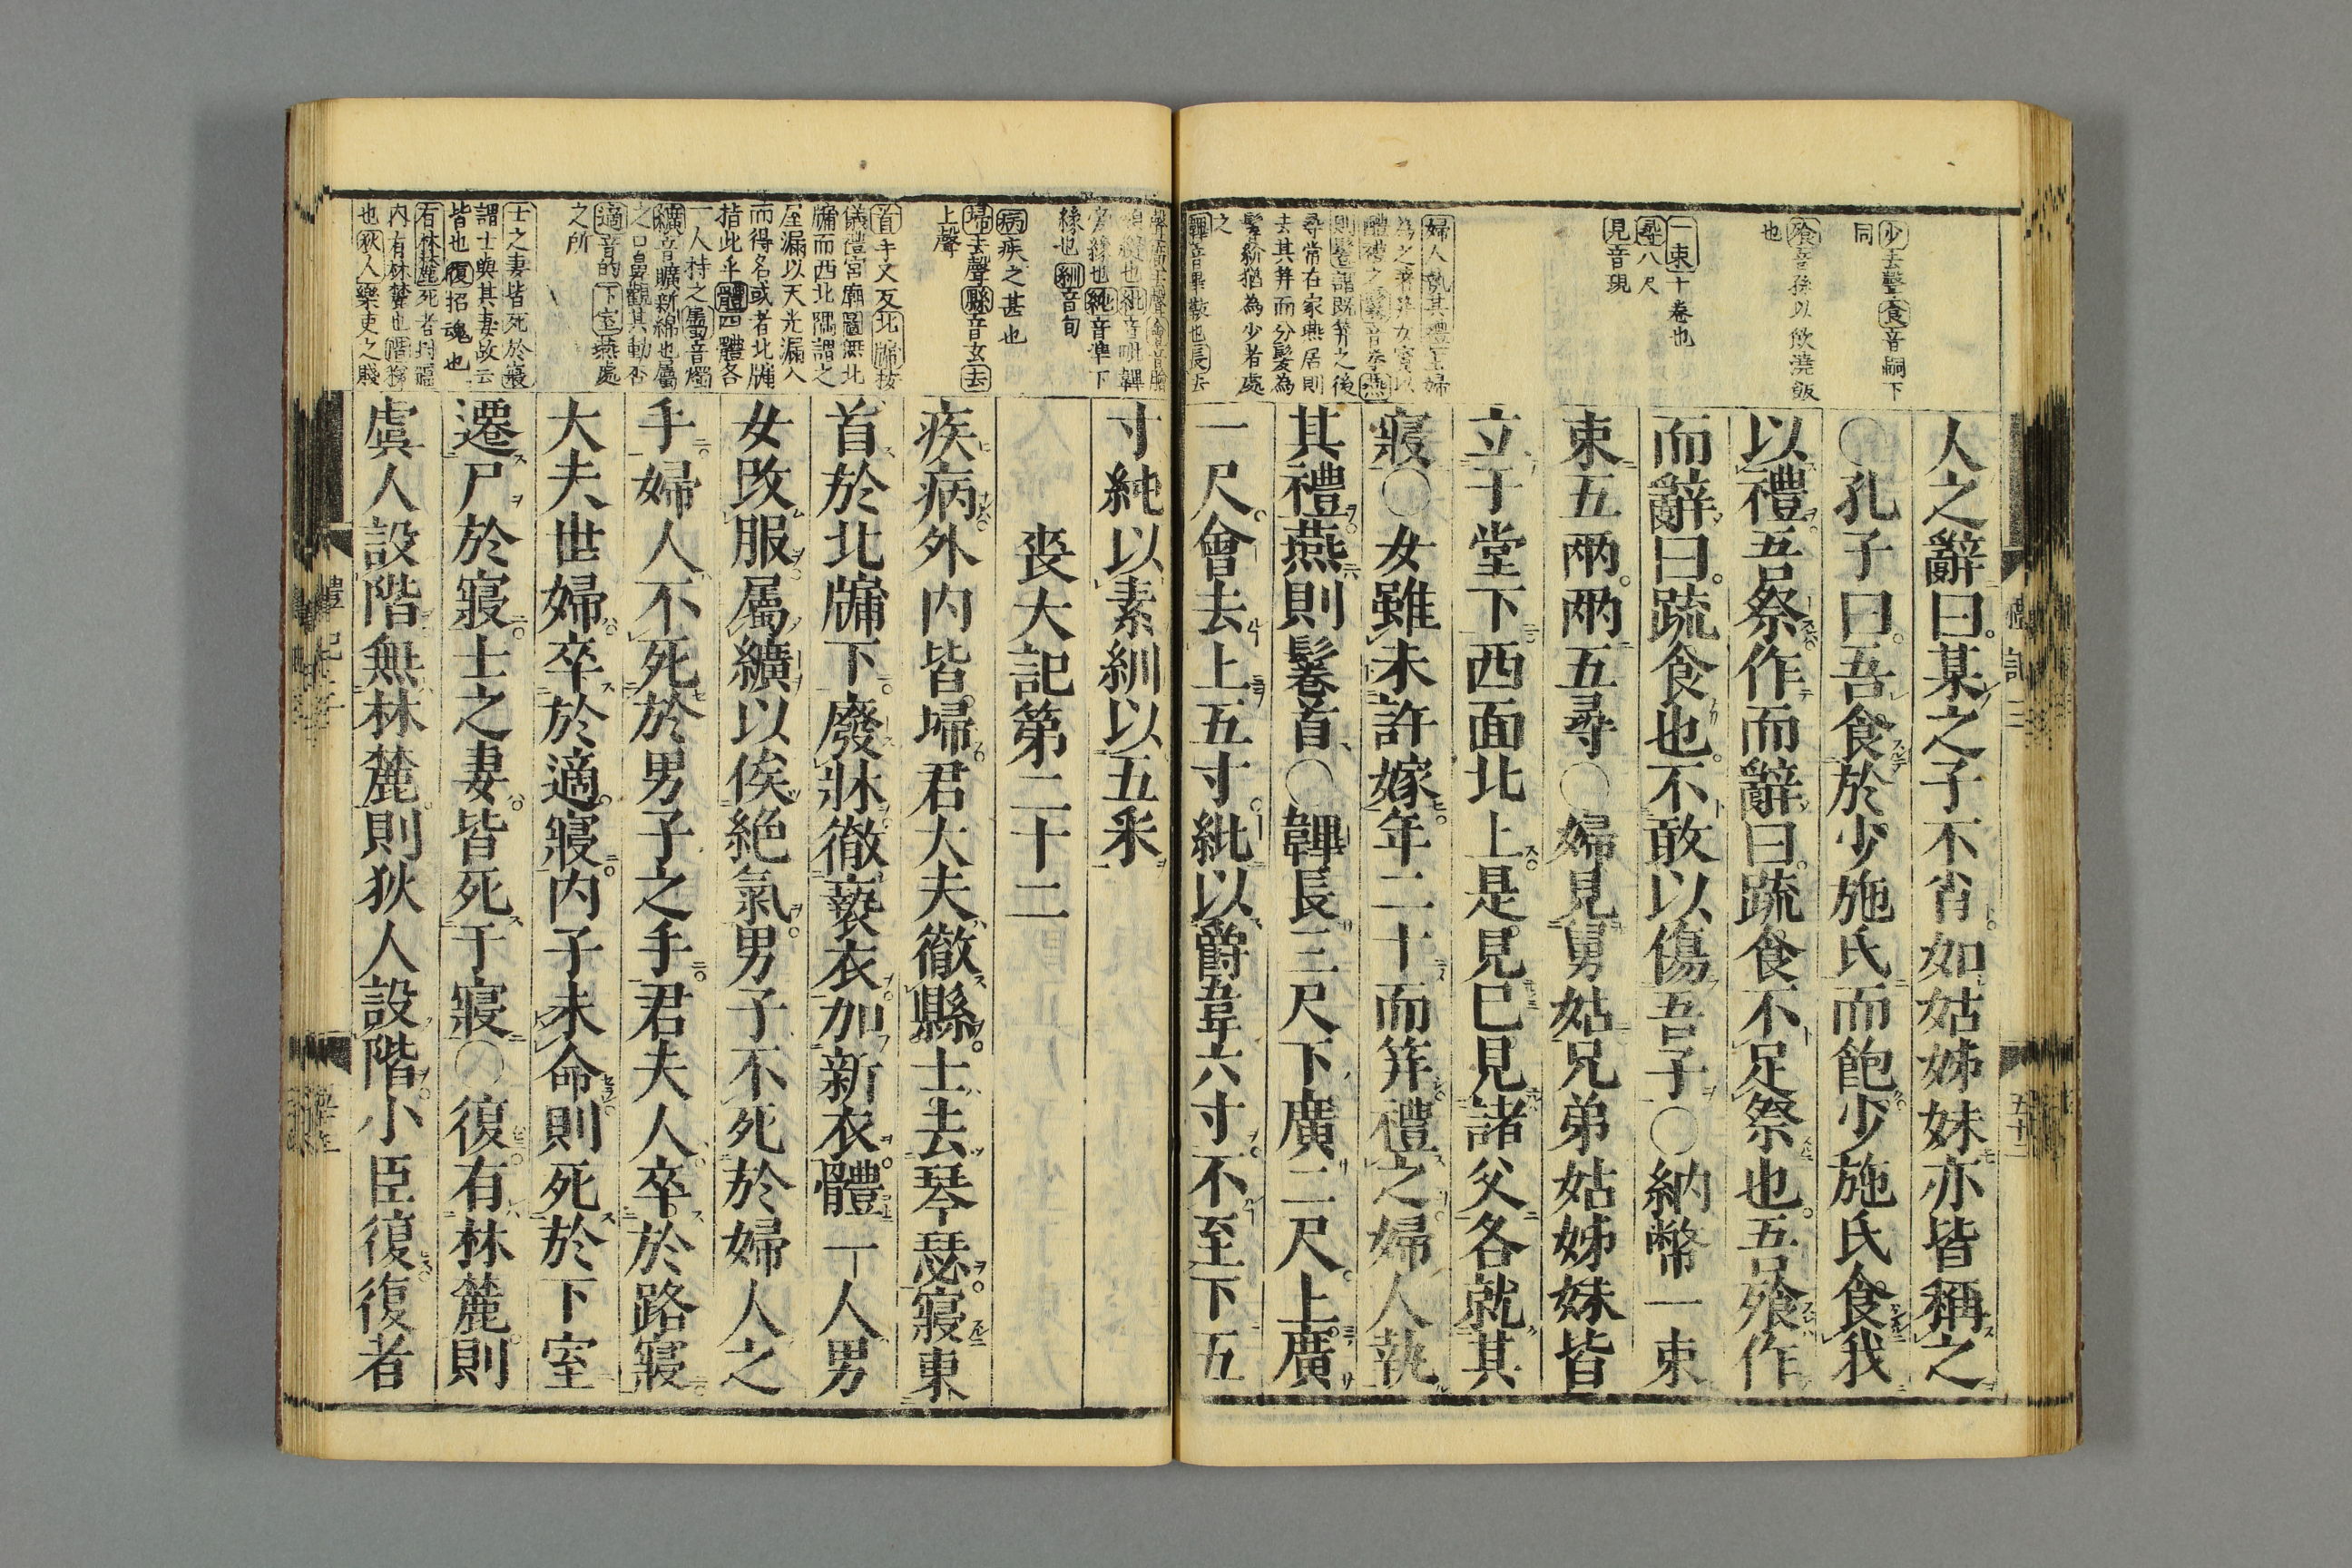 少去聲食音嗣下
同
飱音孫以飲澆飯
也
一束十卷也
尋八尺
見音現
婦人執其禮主婦
為之著笄女賓以
醴禮之鬈音拳燕
則鬈謂既笄之後
尋常在家燕居則
去其笄而分髮為
鬌紒猶為少者處
之
韠音畢蔽也長去
人之辭曰某之子不肖如姑姊妹亦皆稱之
〇孔子曰吾食於少施氏而飽少施氏食我
以禮吾祭作而辭曰疏食不足祭也吾飱作
而辭曰疏食也不敢以傷吾子〇納幣一束
束五兩兩五尋〇婦見舅姑兄弟姑姊妹皆
立于堂下西面北上是見已見諸父各就其
寢〇女雖未許嫁年二十而笄禮之婦人執
其禮燕則鬈首〇韠長三尺下廣二尺上廣
一尺會去上五寸紕以爵韋六寸不至下五
禮記三
五十二
緣也紃音旬
病疾之甚也
埽去聲縣音玄去
上聲
首手又反北牖按
儀禮宮廟圖無北
牖而西北隅謂之
屋漏以天光漏入
而得名或者北牖
指此乎體四體各
一人持之屬音燭
纊音曠新綿也屬
之口鼻觀其動否
適音的下室燕處
之所
士之妻皆死於寢
謂士與其妻故云
皆也復招魂也
有林麓死者封疆
內有林麓也階梯
也狄人樂吏之賤
寸純以素紃以五采
喪大記第二十二
疾病外内皆埽君大夫徹縣士去琴瑟寢東
首於北牖下廢牀徹褻衣加新衣體一人男
女改服屬纊以俟絶氣男子不死於婦人之
手婦人不死於男子之手君夫人卒於路寢
大夫世婦卒於適寢内子未命則死於下室
遷尸於寢士之妻皆死于寢〇復有林麓則
虞人設階無林麓則狄人設階小臣復復者
禮記三